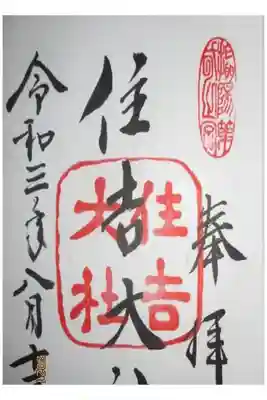 奉拝
住吉大
住吉大社
令和三年八月十